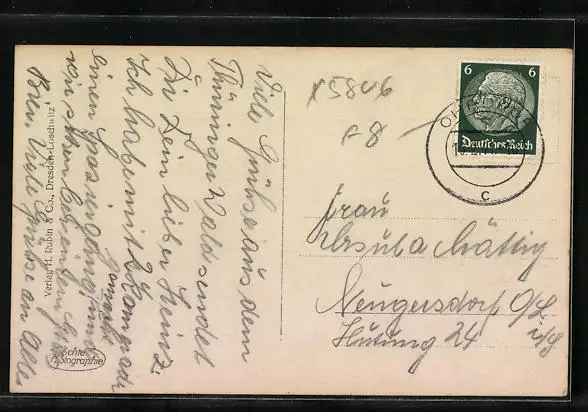 Viele Grüße aus dem
Thüringer Wald sendet
Dir Dein lieber Heinz.
Ich habe mit 2 Kameraden
einen Spaziergang
gemacht
wir
Bier. Viele Grüße an Alle
Verlag H. Rubin & Co., Dresden-Loschwitz
Echte
Photographie
x5846
F8
6 6
Deutsches Reich
OHRDRUF
c
Frau
Ursula Mättig
Neugersdorf O/L
i/S
Hutung 24